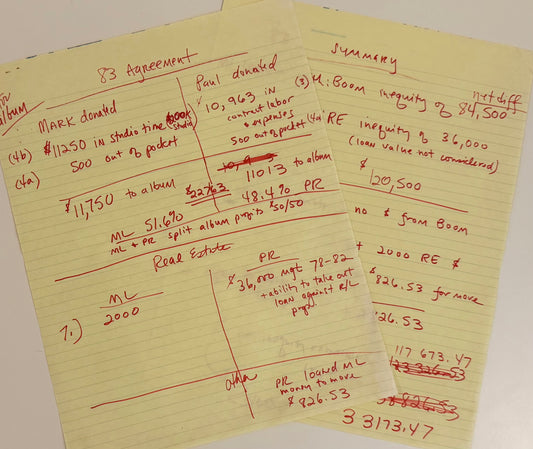 83 Agreement
album
MARK donated
(4b) $11250 in studio time
(4a) 500 out of pocket
$11,750 to album
Paul donated
$10,963 in
contract labor
& expenses
500 out of pocket
11013 to album
$22763
ML 51.6%
48.4% PR
ML + PR split album profits $50/50
Real Estate
ML
2000
7.)
PR
$36,000 mgt 78-82
+ ability to take out
loan against R/L
PR loaned ML
money to move
$826.53
Summary
net diff
(3) BOOM inequity of 84,500
(4a) RE inequity of 36,000
(loan value not considered)
$
120,500
no $ from Boom
2000 RE $
$826.53 for move
26.53
117 673.47
123 326.53
826.53
33173.47